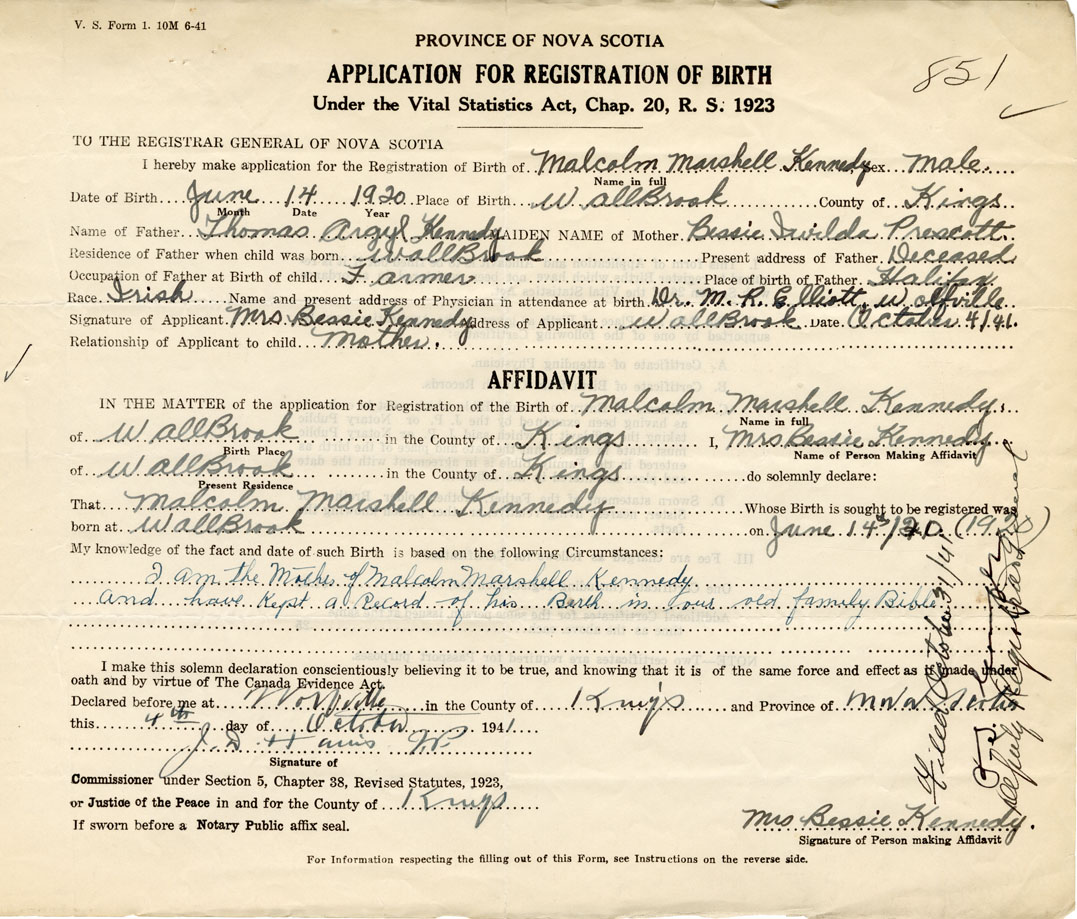 V. S. Form 1. 10M 6-41
PROVINCE OF NOVA SCOTIA
851
APPLICATION FOR REGISTRATION OF BIRTH
Under the Vital Statistics Act, Chap. 20, R. S. 1923
TO THE REGISTRAR GENERAL OF NOVA SCOTIA
I hereby make application for the Registration of Birth of Malcolm Marshell Kennedy Sex Male.
Name in full
Date of Birth June 14 1920 Place of Birth WallBrook County of Kings
Month Date Year
Name of Father Thomas Argyl Kennedy MAIDEN NAME of Mother Bessie Iwilda Prescott.
Residence of Father when child was born WallBrook Present address of Father Deceased
Occupation of Father at Birth of child Farmer Place of Birth of Father Halifax
Race Irish Name and present address of Physician in attendance at birth Dr. M. R. Elliott Wolfville
Signature of Applicant Mrs Bessie Kennedy Address of Applicant WallBrook Date October 4/41.
Relationship of Applicant to child Mother.
AFFIDAVIT
IN THE MATTER of the application for Registration of the Birth of Malcolm Marshell Kennedy
Name in full
of WallBrook in the County of Kings I, Mrs Bessie Kennedy
Birth Place Name of Person Making Affidavit
of WallBrook in the County of Kings do solemnly declare:
Present Residence
That Malcolm Marshell Kennedy Whose Birth is sought to be registered was
born at WallBrook on June 14th
My knowledge of the fact and date of such Birth is based on the following Circumstances:
I am the Mother of Malcolm Marshell Kennedy
And have Kept a Record of his Berth in our old family Bible
I make this solemn declaration conscientiously believing it to be true, and knowing that it is of the same force and effect as if made under
oath and by virtue of The Canada Evidence Act.
Declared before me at Wolfville in the County of Kings and Province of Nova Scotia
this 4th day of October 1941
J. D. Harris JP
Signature of
Commissioner under Section 5, Chapter 38, Revised Statutes, 1923,
or Justice of the Peace in and for the County of Kings
If sworn before a Notary Public affix seal.
Mrs Bessie Kennedy.
Signature of Person making Affidavit
For Information respecting the filling out of this Form, see Instructions on the reverse side.
Filed October 31/41
Deputy Registrar General